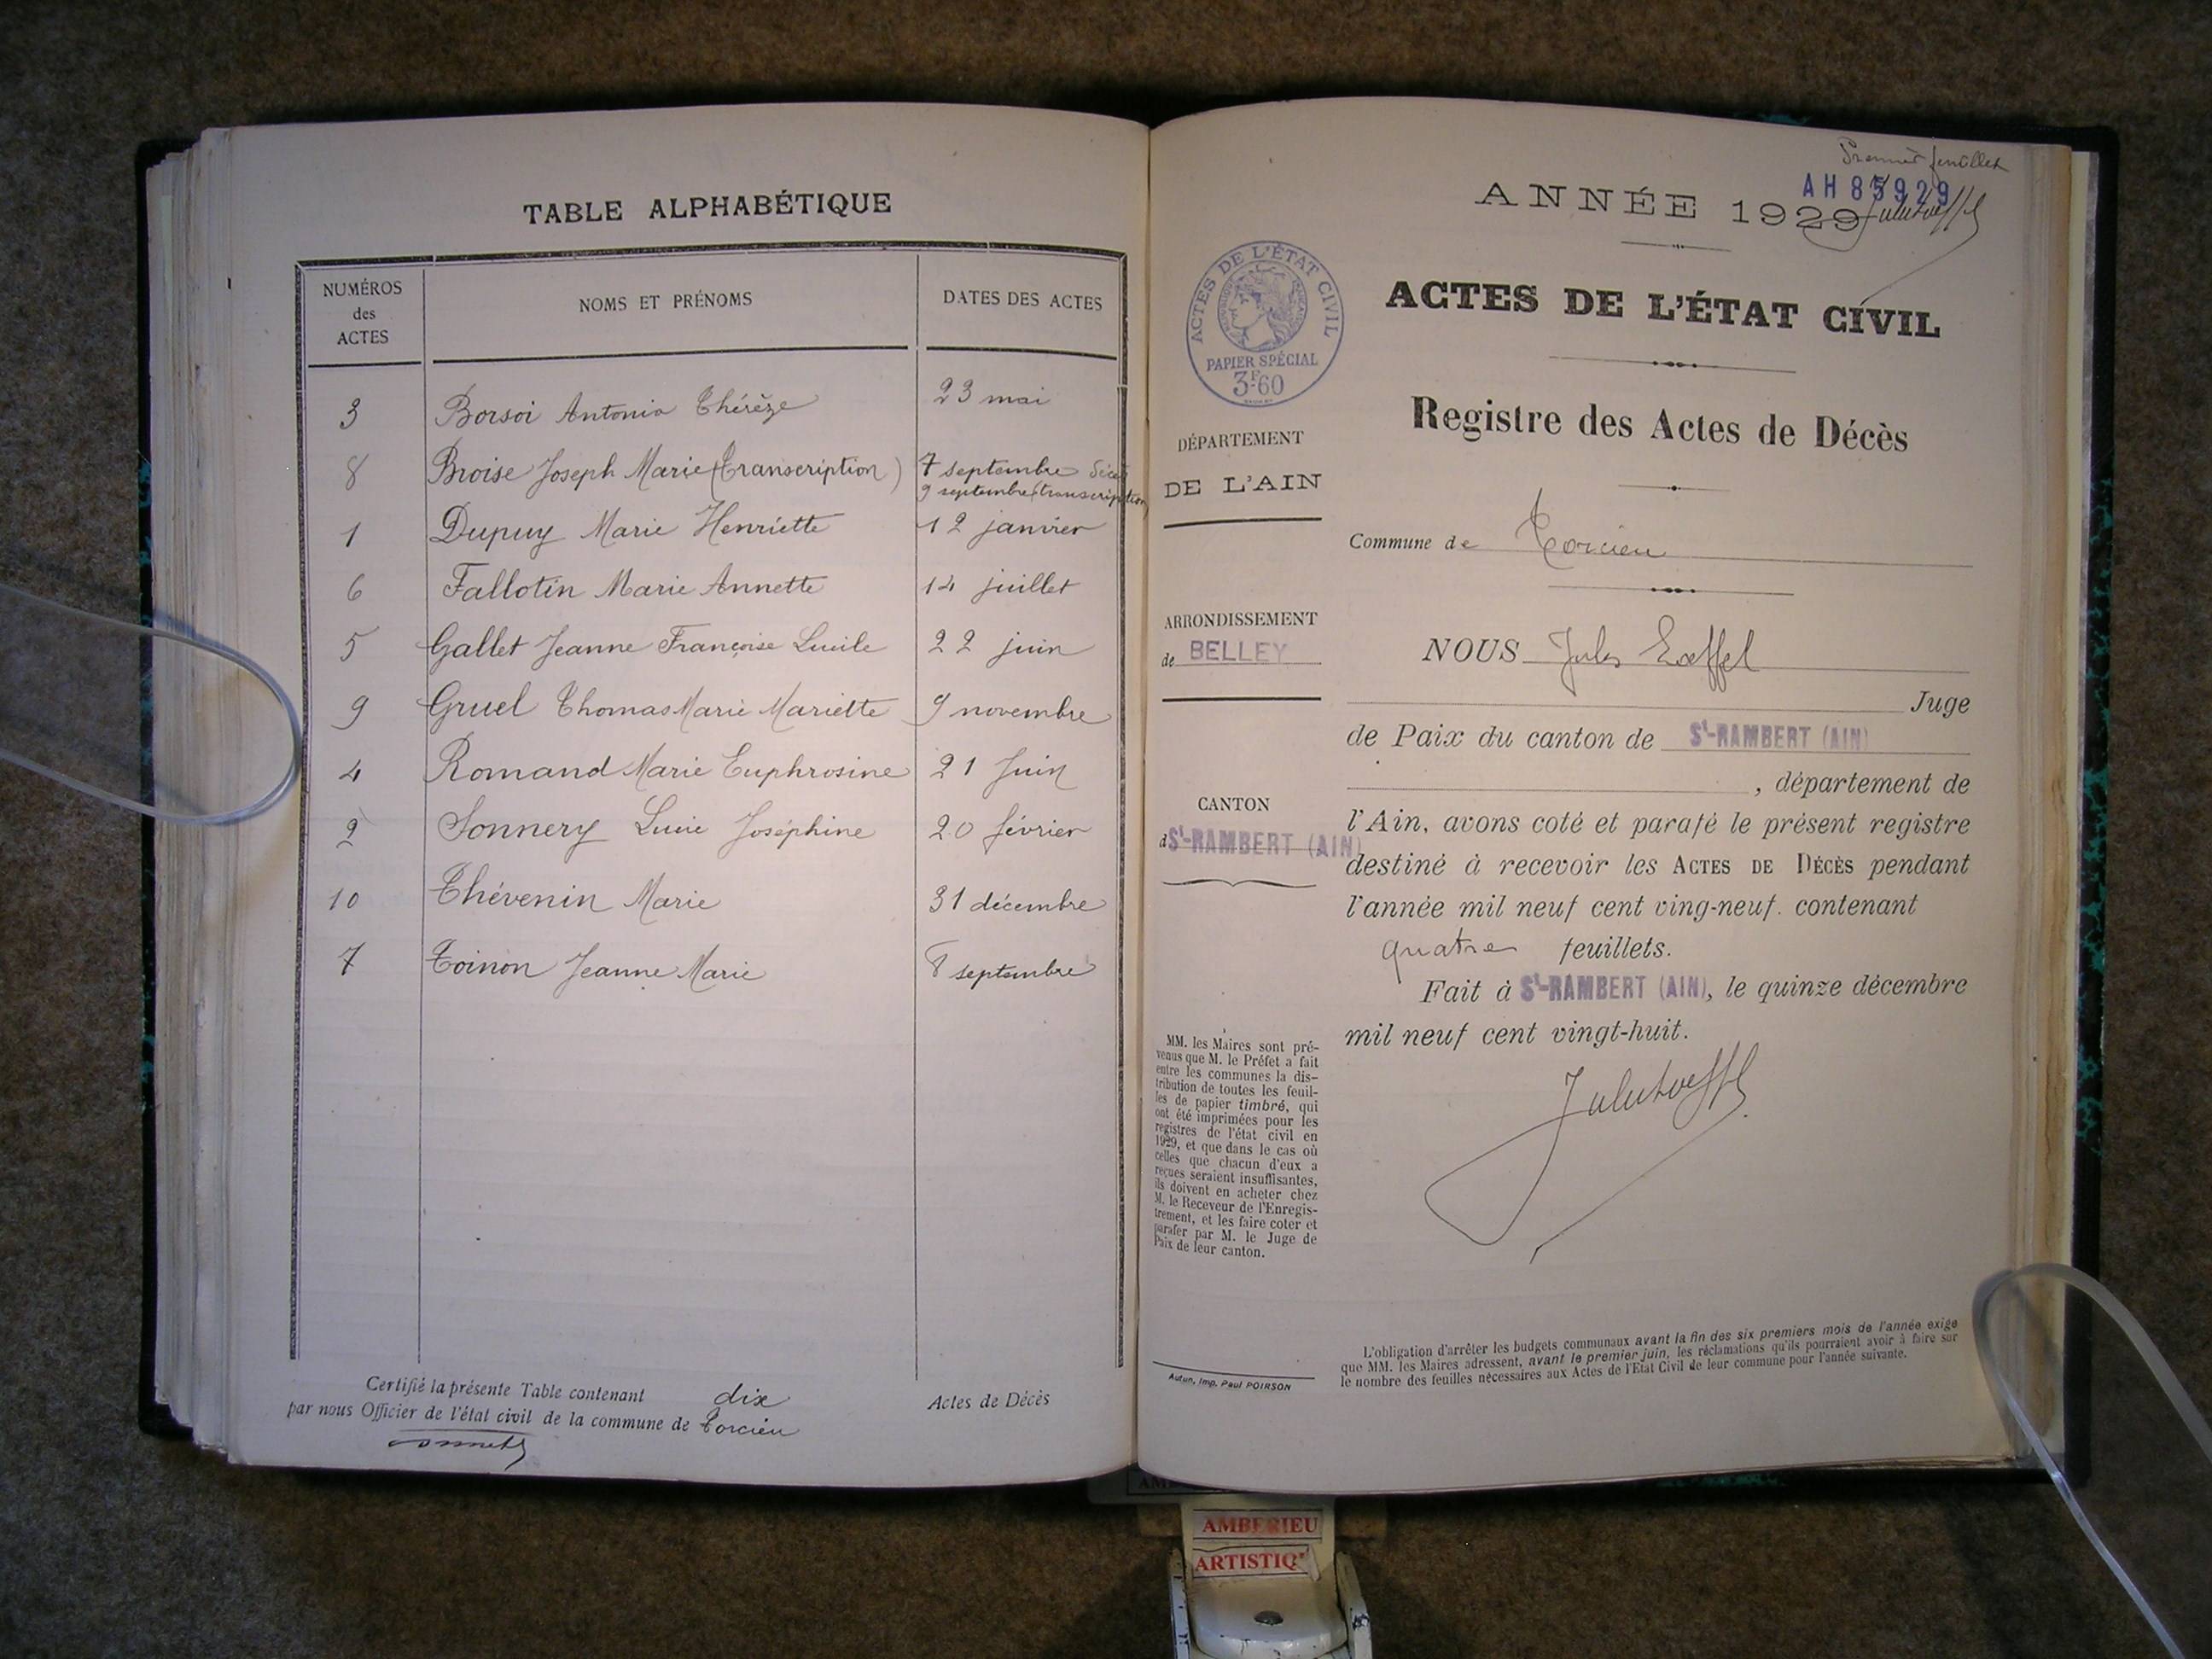 TABLE ALPHABÉTIQUE
NUMÉROS
des
ACTES
NOMS ET PRÉNOMS
DATES DES ACTES
3 Borsoi Antonia Thérèze 23 mai
8 Broise Joseph Marie (Transcription) 7 septembre décès
9 septembre (transcription
1 Dupuy Marie Henriette 12 janvier
6 Fallotin Marie Annette 14 juillet
5 Gallet Jeanne Françoise Lucile 22 juin
9 Gruel Thomas Marie Mariette 9 novembre
4 Romand Marie Euphrosine 21 Juin
2 Sonnery Lucie Joséphine 20 février
10 Thévenin Marie 31 décembre
7 Toinon Jeanne Marie 8 septembre
Certifié la présente Table contenant dix Actes de Décès
par nous Officier de l'état civil de la commune de Torcieu
Premier feuillet
AH 85929
ANNÉE 1929
ACTES DE L'ÉTAT CIVIL
PAPIER SPÉCIAL
3F60
ACTES DE L'ÉTAT CIVIL
Registre des Actes de Décès
DÉPARTEMENT
DE L'AIN
Commune de Torcieu
ARRONDISSEMENT
de BELLEY
NOUS Jules Loeffel
Juge
de Paix du canton de St-RAMBERT (AIN)
, département de
CANTON
d St-RAMBERT (AIN)
l'Ain, avons coté et parafé le présent registre
destiné à recevoir les ACTES DE DÉCÈS pendant
l'année mil neuf cent ving-neuf. contenant
quatre feuillets.
Fait à St-RAMBERT (AIN), le quinze décembre
mil neuf cent vingt-huit.
MM. les Maires sont pré-
venus que M. le Préfet a fait
entre les communes la dis-
tribution de toutes les feuil-
les de papier timbré, qui
ont été imprimées pour les
registres de l'état civil en
1929, et que dans le cas où
celles que chacun d'eux a
reçues seraient insuffisantes,
ils doivent en acheter chez
M. le Receveur de l'Enregis-
trement, et les faire coter et
parafer par M. le Juge de
Paix de leur canton.
Autun, Imp. Paul POIRSON
L'obligation d'arrêter les budgets communaux avant la fin des six premiers mois de l'année exige
que MM. les Maires adressent, avant le premier juin, les réclamations qu'ils pourraient avoir à faire sur
le nombre des feuilles nécessaires aux Actes de l'Etat Civil de leur commune pour l'année suivante.
AMBERIEU
ARTISTIQ